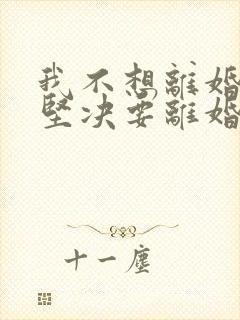 我不想離婚
堅决要離婚
十一塵